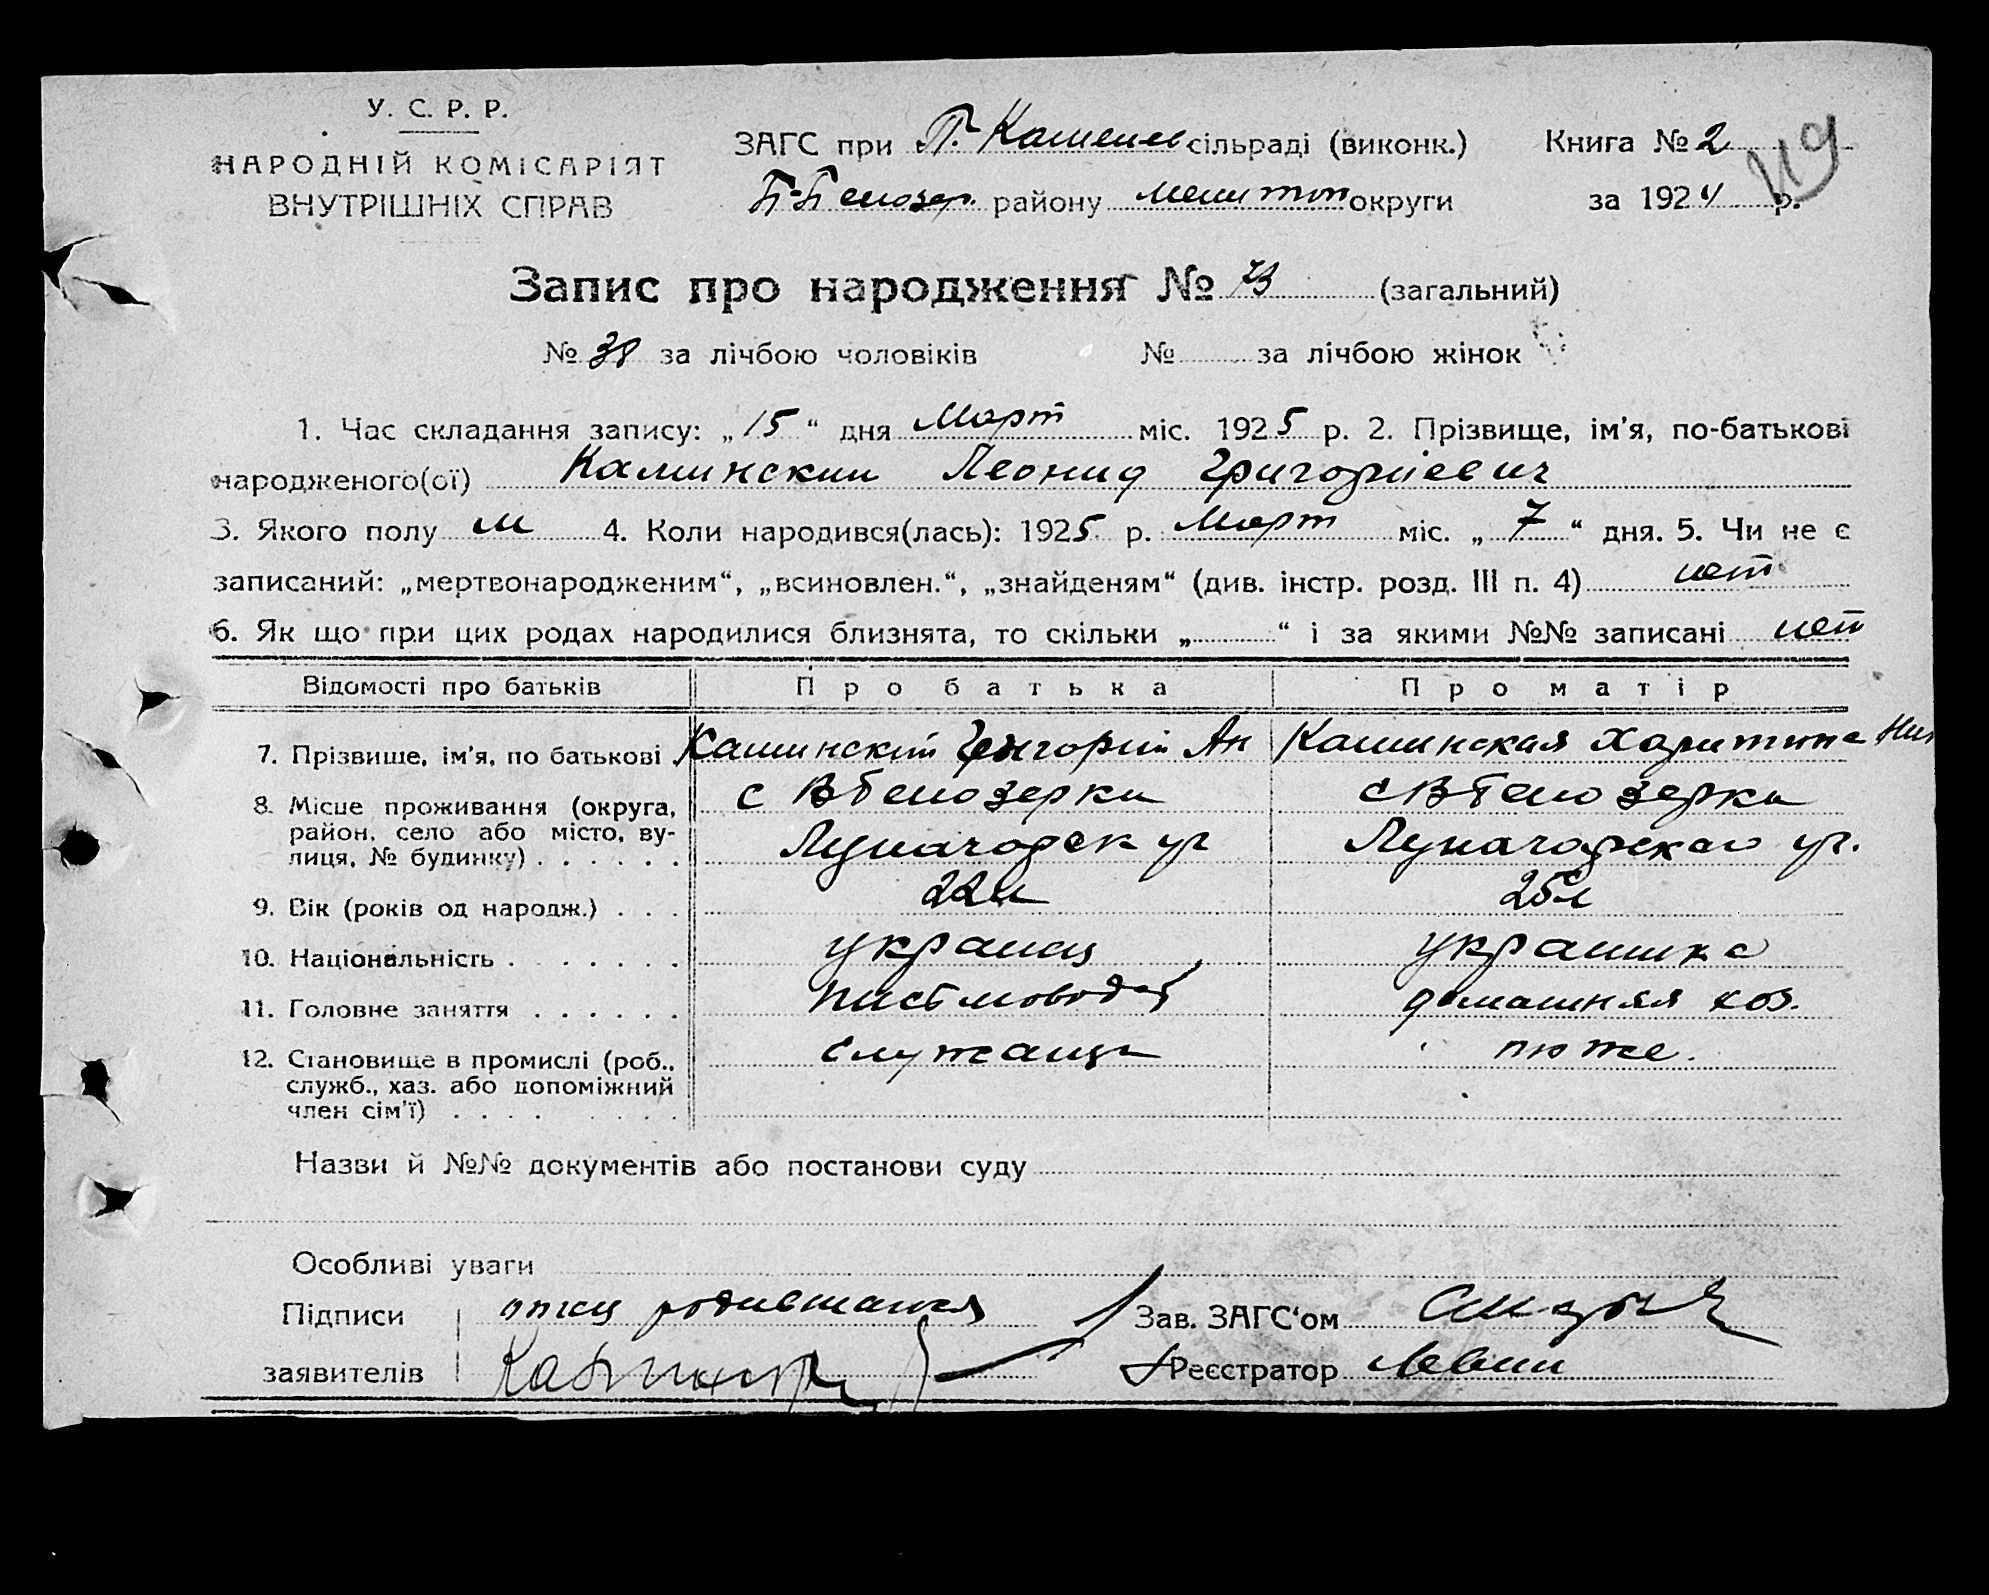 У. С. Р. Р.
НАРОДНІЙ КОМІСАРІЯТ
ВНУТРІШНІХ СПРАВ
ЗАГС при П. Камен сільраді (виконк.)
Б-Белозер. району Мелитоп округи
Книга № 2
за 1924 р.
119
Запис про народження № 73 (загальний)
№ 38 за лічбою чоловіків № за лічбою жінок
1. Час складання запису: „15“ дня Март міс. 1925 р. 2. Прізвище, ім'я, по-батькові
народженого(ої) Каминский Леонид Григориевич
3. Якого полу м 4. Коли народився(лась): 1925 р. Март міс. „7“ дня. 5. Чи не є
записаний: „мертвонародженим“, „всиновлен.“, „знайденям“ (див. інстр. розд. III п. 4) нет
6. Як що при цих родах народилися близнята, то скільки „ “ і за якими №№ записані нет
Відомості про батьків Про батька Про матір
7. Прізвище, ім'я, по батькові Каминский Григорий Ан Каминская Харитина
8. Місце проживання (округа, район, село або місто, вулиця, № будинку)
с ВБелозерки
Луначарск ул
с ВБелозерки
Луначарская ул.
9. Вік (років од народж.) 22 л 25 л
10. Національність украинец украинка
11. Головне заняття письмовод домашняя хоз.
12. Становище в промислі (роб., служб., хаз. або допоміжний член сім'ї) служащ то же.
Назви й №№ документів або постанови суду
Особливі уваги
Підписи заявителів отец родившагося
Зав. ЗАГС'ом
Реєстратор Левин